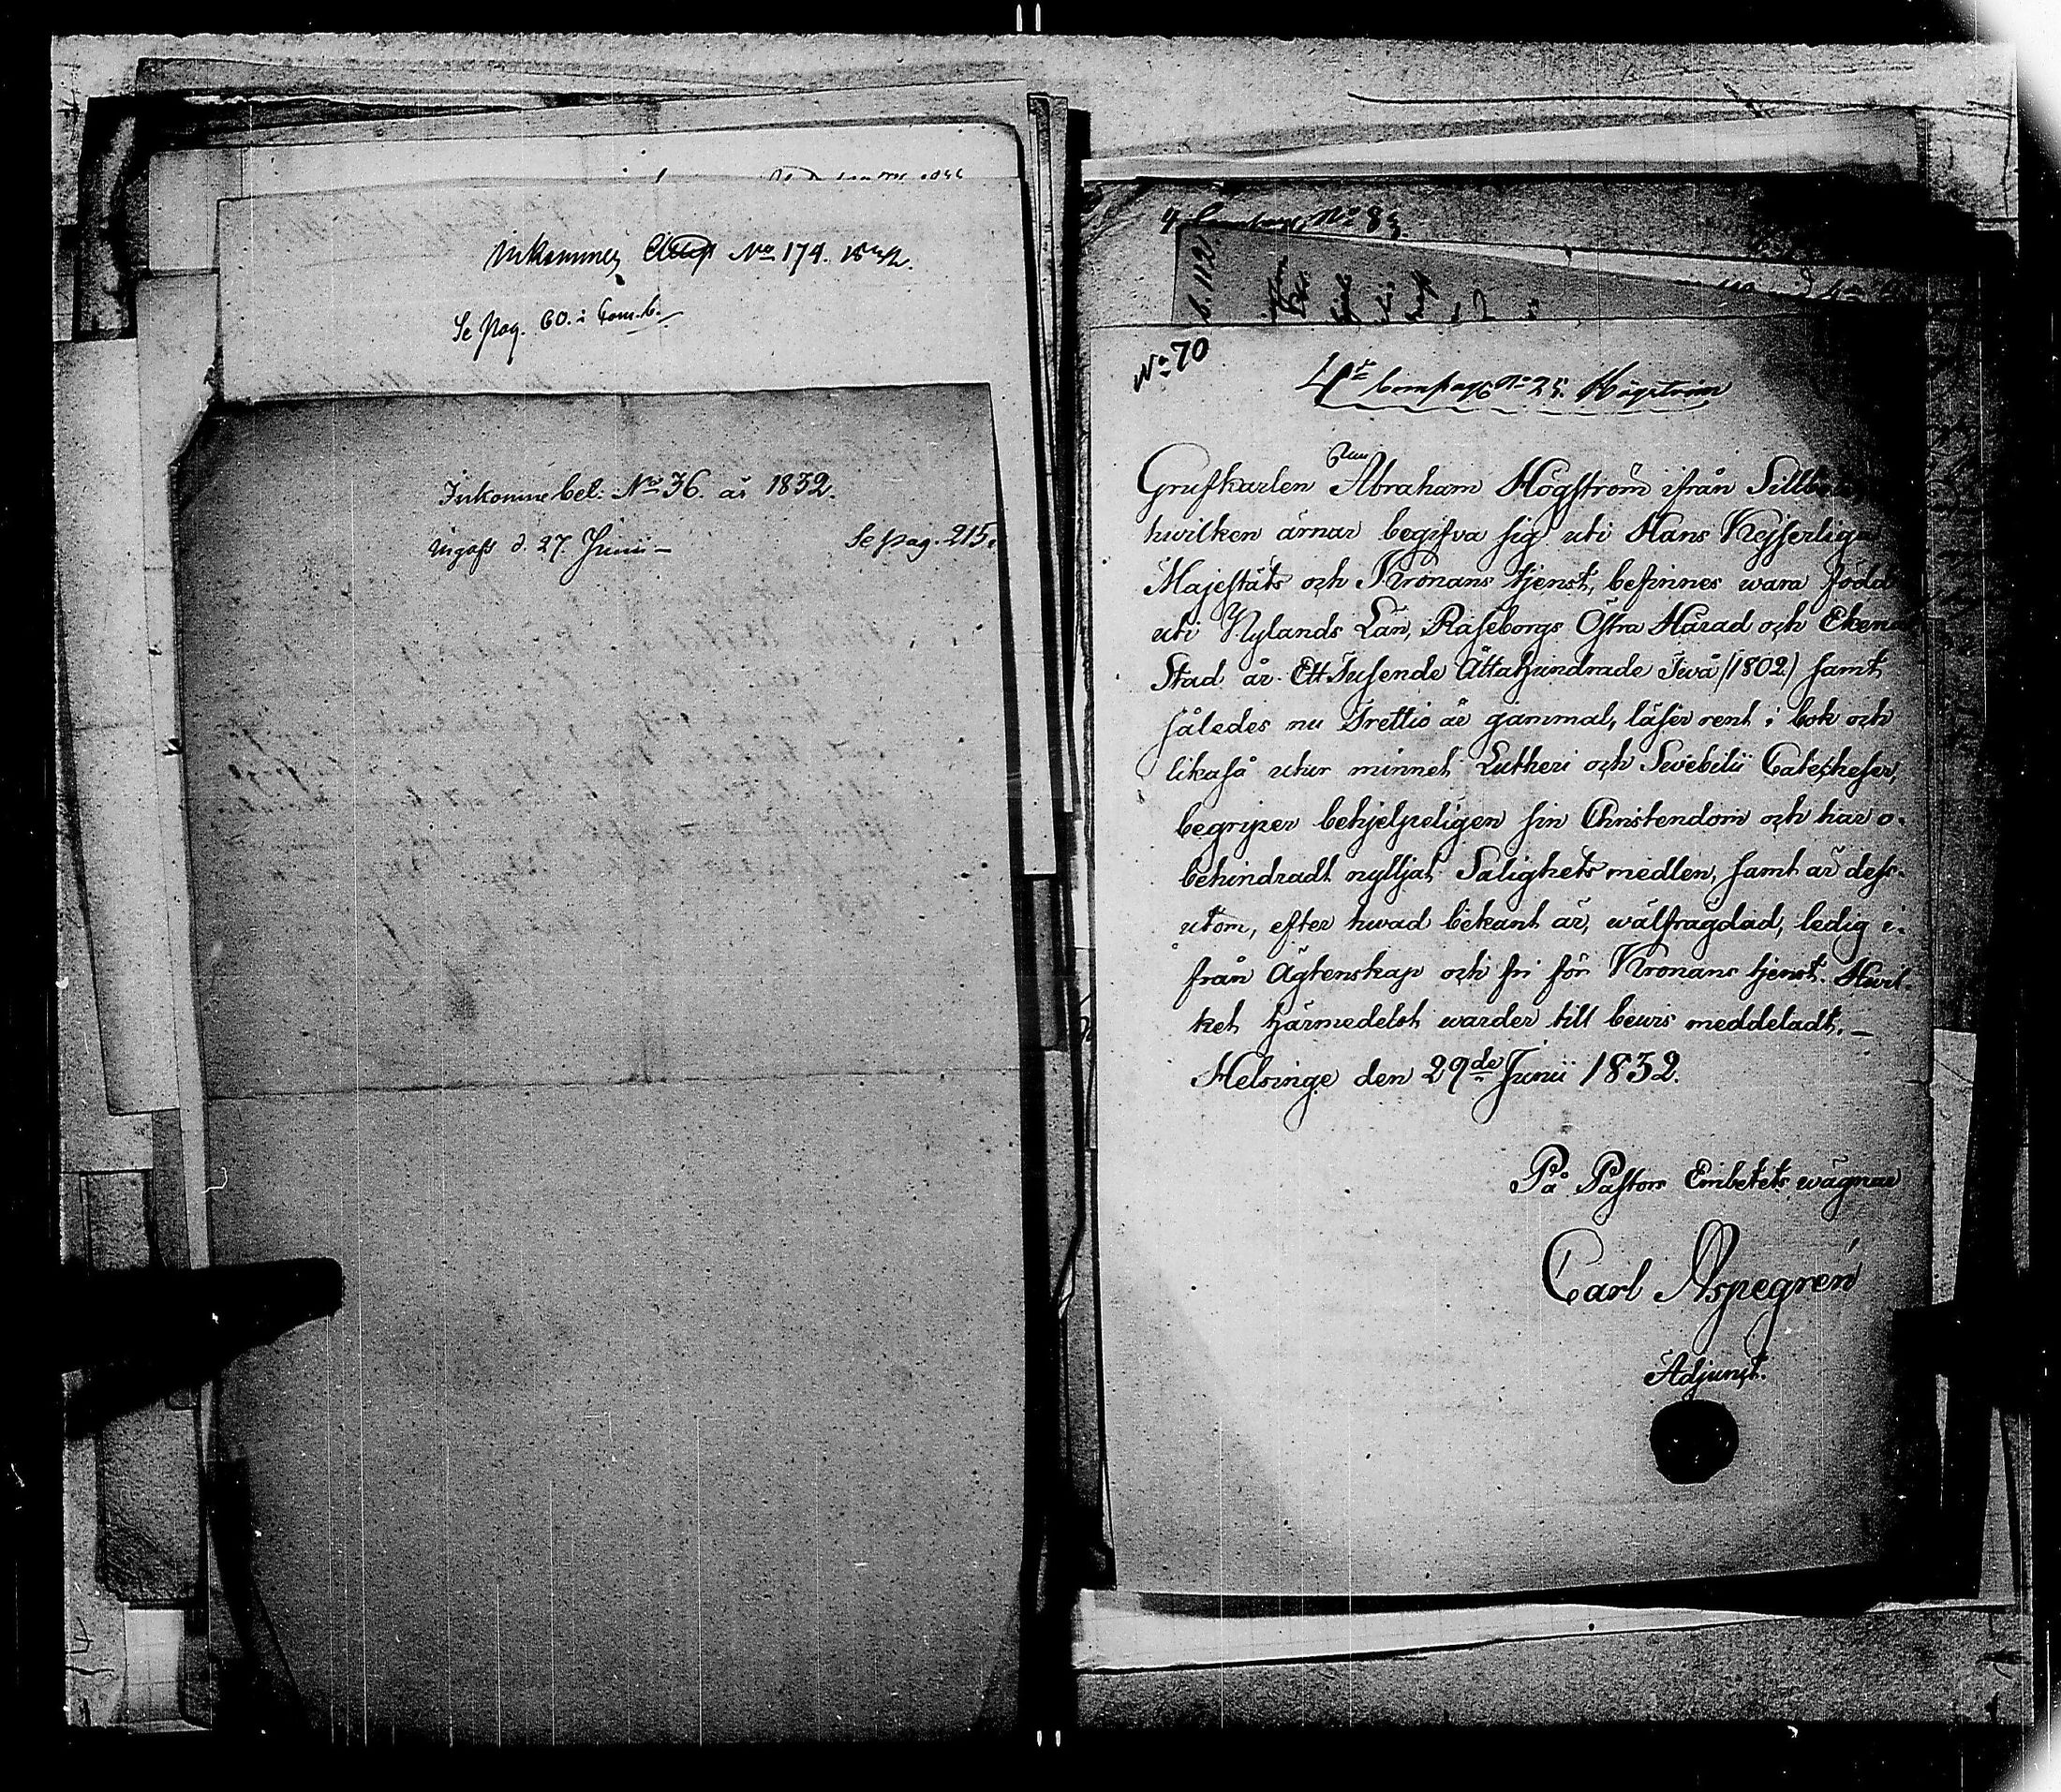 Inkomne Attest No 174. 1832.
Se pag. 60. i tom. 6.
Inkomne bet. No 36. år 1832.
ingafs d. 27. Junii –
Se pag. 215.
4 Compag. No 83
No 70
4de Compag No 25. Högström
Grufkarlen Abraham Högström ifrån
hvilken ärnar begifva sig uti Hans Kejserliga
Majestäts och Kronans tjenst, befinnes wara född
uti Nylands Län, Raseborgs Östra Härad och
Stad år Ett Tusende Åttahundrade Två /1802/ samt
således nu Trettio år gammal, läser rent i bok och
likaså utur minnet Lutheri och Swebilii Catecheser,
begriper behjelpeligen sin Christendom och har o-
behindradt nyttjat Salighets medlen, samt är dess-
utom, efter hwad bekant är, wälfrägdad, ledig i-
från Ägtenskap och fri för Kronans tjenst. Hwil-
ket härmedelst warder till bewis meddeladt. –
Helsinge den 29de Junii 1832.
På Pastors Embetets wägnar
Carl Aspegren
Adjunct.